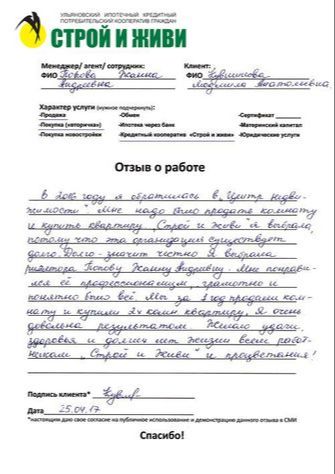 УЛЬЯНОВСКИЙ ИПОТЕЧНЫЙ КРЕДИТНЫЙ
ПОТРЕБИТЕЛЬСКИЙ КООПЕРАТИВ ГРАЖДАН
СТРОЙ И ЖИВИ
Менеджер/ агент/ сотрудник: Клиент:
ФИО Попова Жанна ФИО Кувшинова
Андреевна Людмила Анатольевна
Характер услуги (нужное подчеркнуть):
-Продажа -Обмен -Сертификат
-Покупка (вторичная) -Ипотека через банк -Материнский капитал
-Покупка новостройки -Кредитный кооператив «Строй и живи» -Юридические услуги
Отзыв о работе
В 2016 году я обратилась в „Центр недви-
жимости". Мне надо было продать комнату
и купить квартиру. „Строй и Живи" я выбрала,
потому что эта организация существует
долго. Долго - значит честно. Я выбрала
риэлтора Попову Жанну Андреевну. Мне понрави-
лся её профессионализм, грамотно и
понятно было всё. Мы за 1 год продали ком-
нату и купили 2х комн квартиру. Я очень
довольна результатом. Желаю удачи,
здоровья и долгих лет жизни всем работ-
никам „Строй и Живи" и процветания!
Подпись клиента*
Дата 25.04.17
*настоящим даю свое согласие на публичное использование и демонстрацию данного отзыва в СМИ
Спасибо!